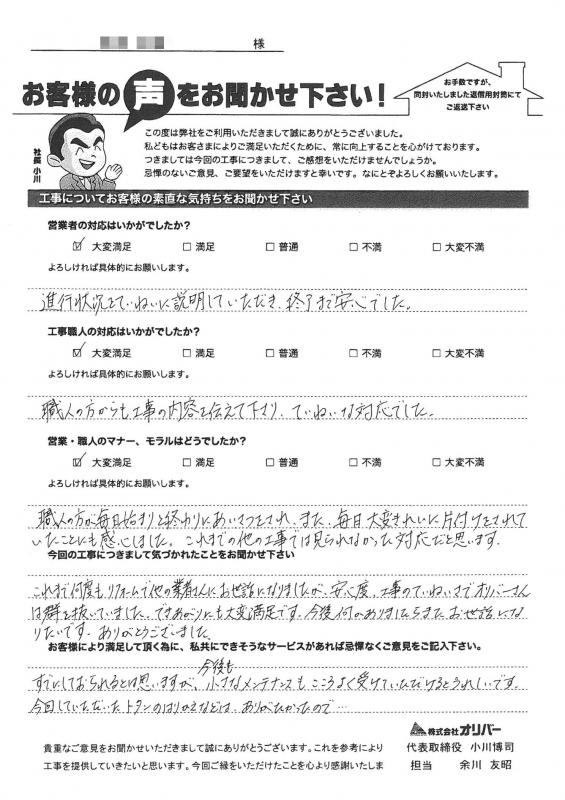 様
お客様の声をお聞かせ下さい！
お手数ですが、
同封いたしました返信用封筒にて
ご返送下さい
社長 小川
この度は弊社をご利用いただきまして誠にありがとうございました。
私どもはお客さまによりご満足いただくために、常に向上することを心がけております。
つきましては今回の工事につきまして、ご感想をいただけませんでしょうか。
忌憚のないご意見、ご要望をいただけますと幸いです。なにとぞよろしくお願いいたします。
工事についてお客様の素直な気持ちをお聞かせ下さい
営業者の対応はいかがでしたか？
☑ 大変満足 □ 満足 □ 普通 □ 不満 □ 大変不満
よろしければ具体的にお願いします。
進行状況をていねいに説明していただき、終了まで安心でした。
工事職人の対応はいかがでしたか？
☑ 大変満足 □ 満足 □ 普通 □ 不満 □ 大変不満
よろしければ具体的にお願いします。
職人の方からも工事の内容を伝えて下さり、ていねいな対応でした。
営業・職人のマナー、モラルはどうでしたか？
☑ 大変満足 □ 満足 □ 普通 □ 不満 □ 大変不満
よろしければ具体的にお願いします。
職人の方が毎日始まりと終わりにあいさつをされ、また、毎日大変きれいに片付けをされて
いたことにも感心しました。これまでの他の工事では見られなかった対応だと思います。
今回の工事につきまして気づかれたことをお聞かせ下さい
これまで何度もリフォームで他の業者さんにお世話になりましたが、安心度、工事のていねいさでオリバーさん
は群を抜いていました。できあがりにも大変満足です。今後何かありましたらまたお世話にな
りたいです。ありがとうございました。
お客様により満足して頂く為に、私共にできそうなサービスがあれば忌憚なくご意見をご記入下さい。
すでにしておられるとは思いますが、今後も小さなメンテナンスもこころよく受けていただけるとうれしいです。
今回していただいたトタンのはりかえなどは、ありがたかったので…
貴重なご意見をお聞かせいただきまして誠にありがとうございます。これを参考により
工事を提供していきたいと思います。今回ご縁をいただけたことを心より感謝いたしま
株式会社オリバー
代表取締役 小川博司
担当 余川 友昭